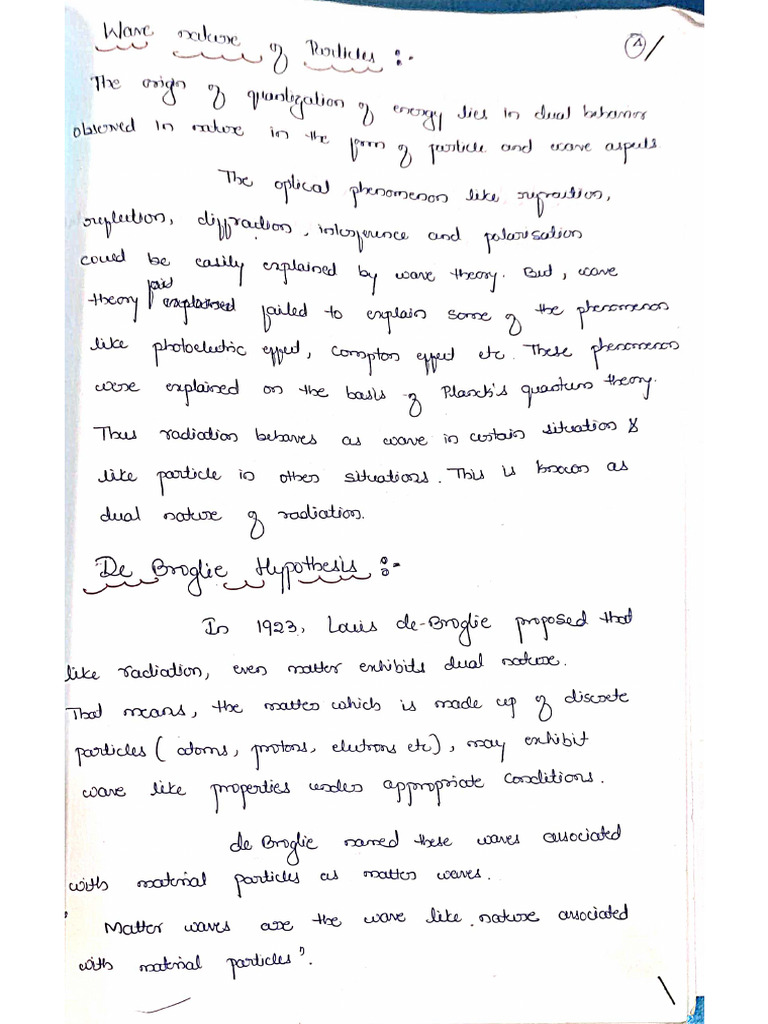 Wave nature of Particles :-
The origin of quantization of energy lies in dual behavior
observed in nature in the form of particle and wave aspects.
The optical phenomenon like refraction,
reflection, diffraction, interference and polarisation
could be easily explained by wave theory. But, wave
theory explained failed to explain some of the phenomenon
like photoelectric effect, compton effect etc. These phenomenon
were explained on the basis of Planck's quantum theory.
Thus radiation behaves as wave in certain situation &
like particle in other situations. This is known as
dual nature of radiation.
De Broglie Hypothesis :-
In 1923, Louis de-Broglie proposed that
like radiation, even matter exhibits dual nature.
That means, the matter which is made up of discrete
particles ( atoms, protons, elutrons etc), may exhibit
wave like properties under appropriate conditions.
de Broglie named these waves associated
with material particles as matter waves.
" Matter waves are the wave like nature associated
with material particles".